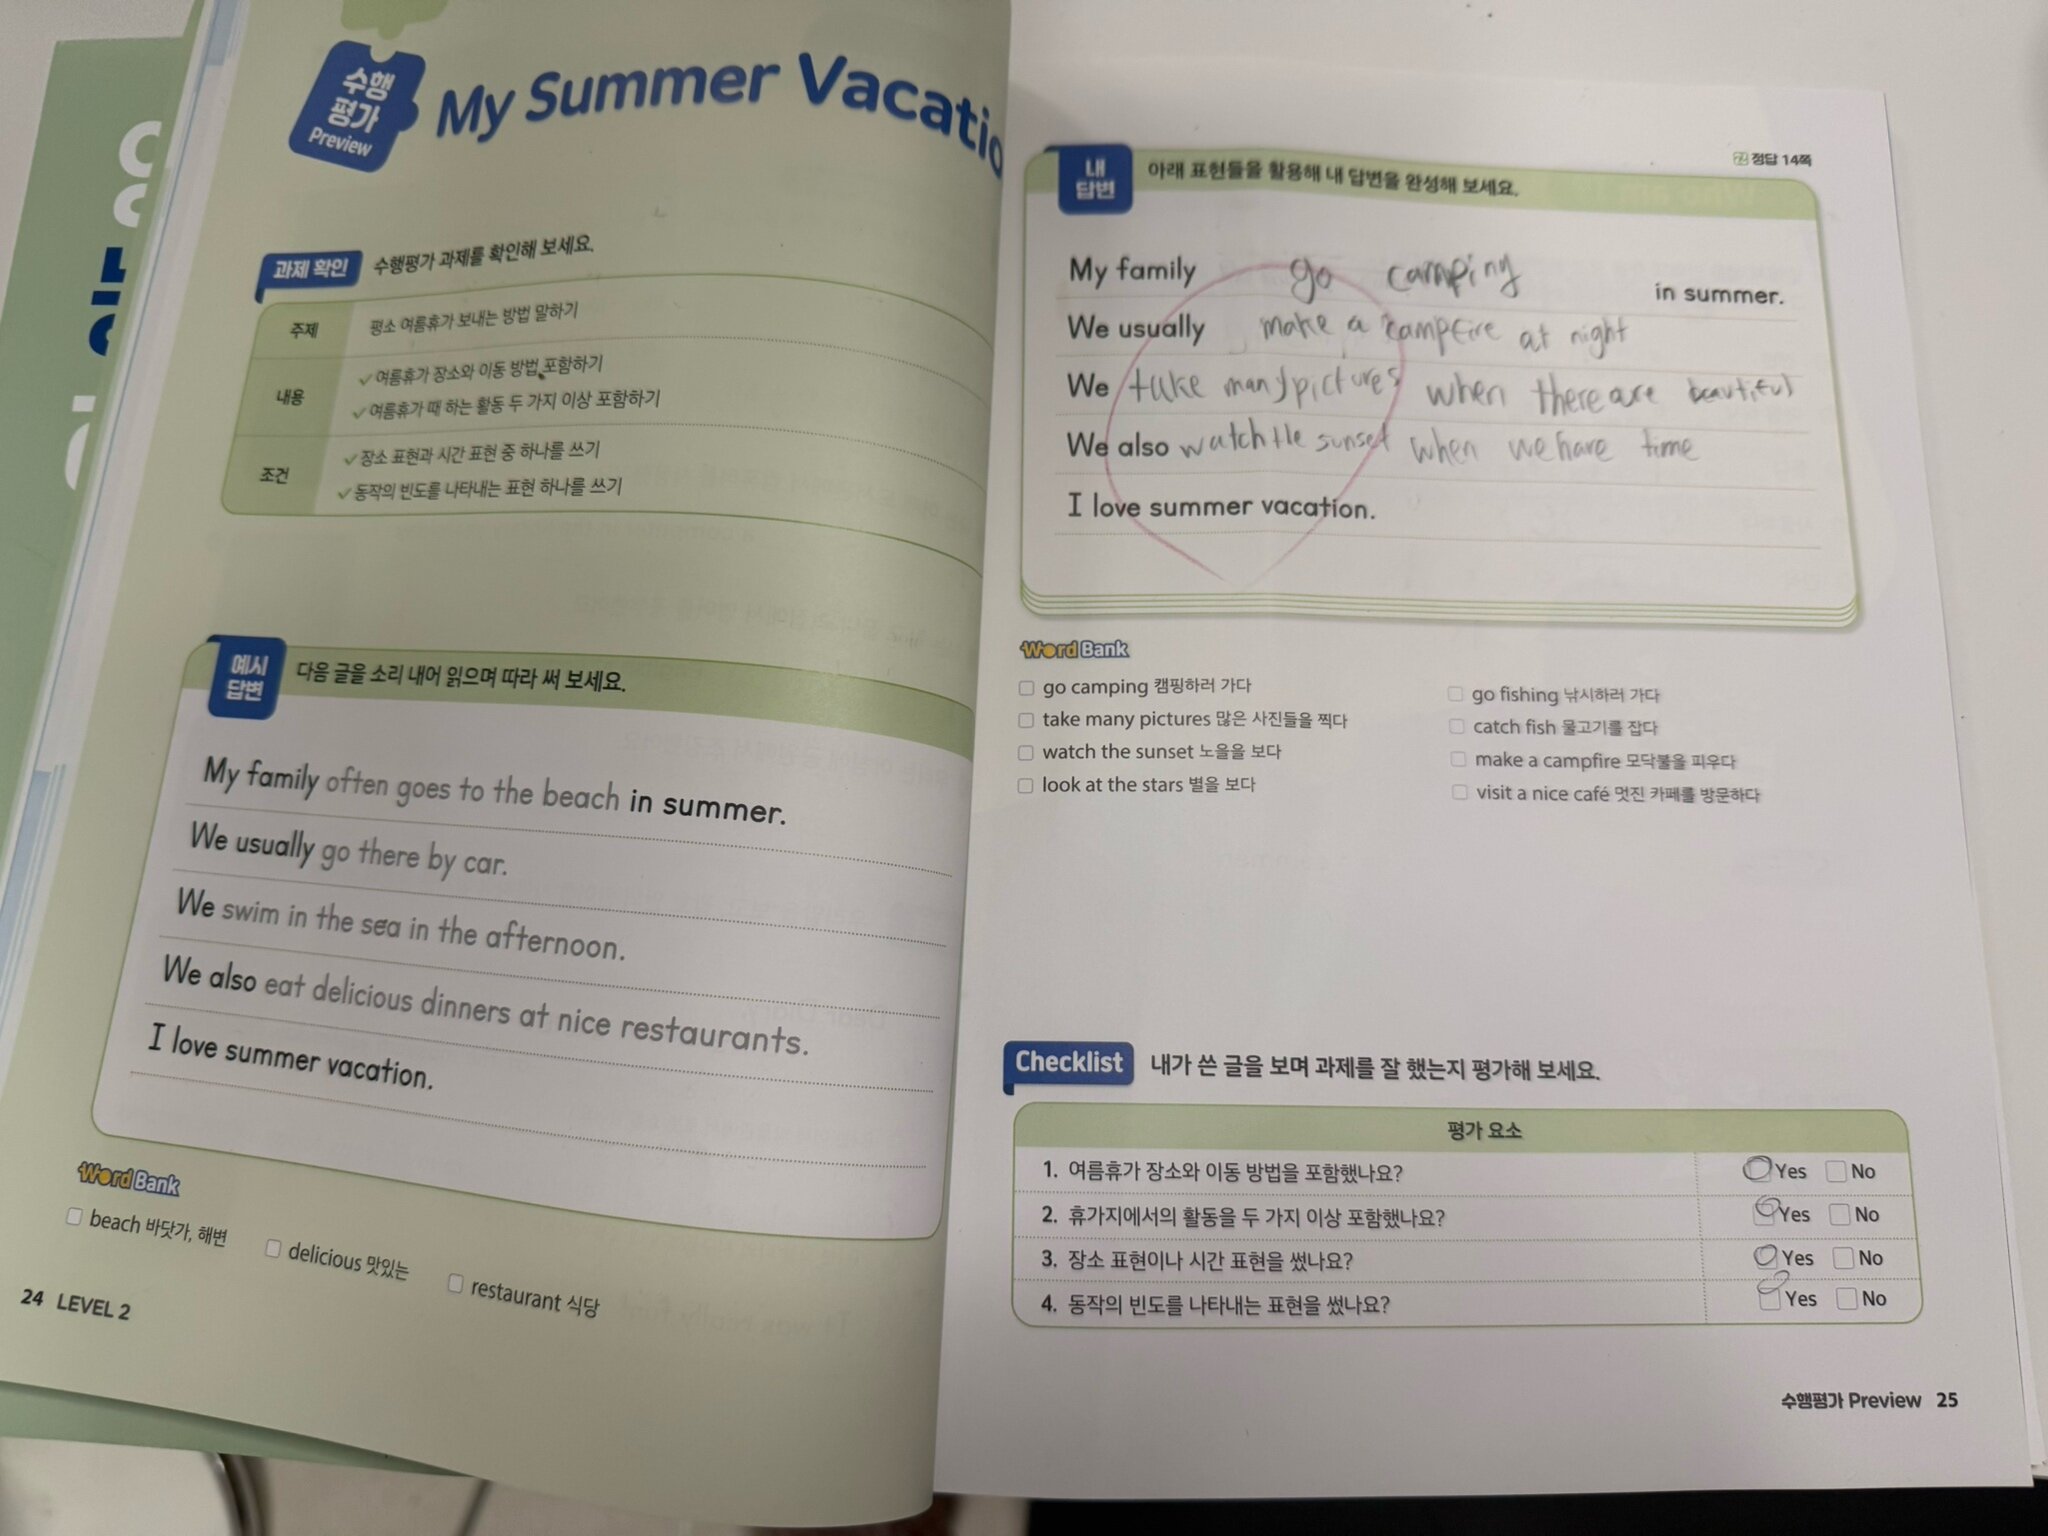 수행
평가
Preview
My Summer Vacatio
과제 확인 수행평가 과제를 확인해 보세요.
주제 평소 여름휴가 보내는 방법 말하기
내용 ✓여름휴가 장소와 이동 방법 포함하기
✓여름휴가 때 하는 활동 두 가지 이상 포함하기
조건 ✓장소 표현과 시간 표현 중 하나를 쓰기
✓동작의 빈도를 나타내는 표현 하나를 쓰기
예시
답변
다음 글을 소리 내어 읽으며 따라 써 보세요.
My family often goes to the beach in summer.
We usually go there by car.
We swim in the sea in the afternoon.
We also eat delicious dinners at nice restaurants.
I love summer vacation.
Word Bank
beach 바닷가, 해변
delicious 맛있는
restaurant 식당
24 LEVEL 2
정답 14쪽
내
답변
아래 표현들을 활용해 내 답변을 완성해 보세요.
My family go camping in summer.
We usually make a campfire at night
We take many pictures when there are beautiful
We also watch the sunset when we have time
I love summer vacation.
Word Bank
go camping 캠핑하러 가다
take many pictures 많은 사진들을 찍다
watch the sunset 노을을 보다
look at the stars 별을 보다
go fishing 낚시하러 가다
catch fish 물고기를 잡다
make a campfire 모닥불을 피우다
visit a nice café 멋진 카페를 방문하다
Checklist 내가 쓴 글을 보며 과제를 잘 했는지 평가해 보세요.
평가 요소
1. 여름휴가 장소와 이동 방법을 포함했나요? Yes No
2. 휴가지에서의 활동을 두 가지 이상 포함했나요? Yes No
3. 장소 표현이나 시간 표현을 썼나요? Yes No
4. 동작의 빈도를 나타내는 표현을 썼나요? Yes No
수행평가 Preview 25